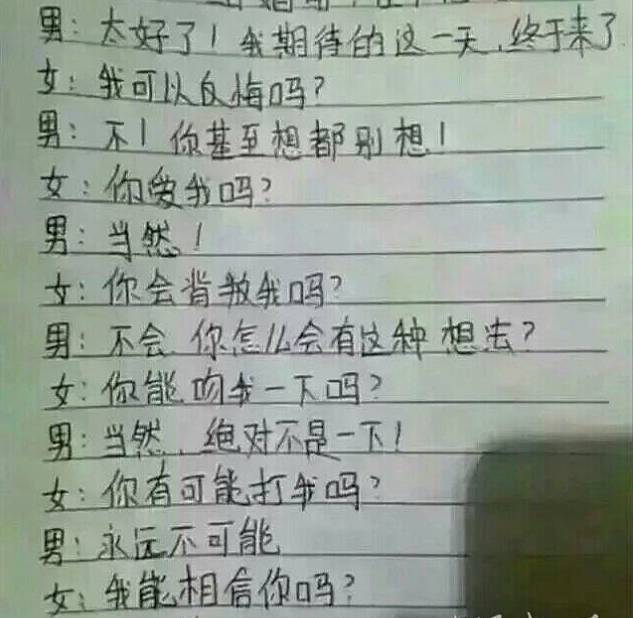 男：太好了！我期待的这一天，终于来了
女：我可以反悔吗？
男：不！你甚至想都别想！
女：你爱我吗？
男：当然！
女：你会背叛我吗？
男：不会，你怎么会有这种想法？
女：你能吻我一下吗？
男：当然，绝对不是一下！
女：你有可能打我吗？
男：永远不可能
女：我能相信你吗？